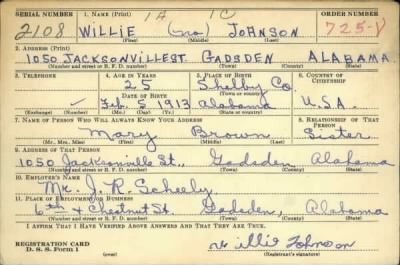 SERIAL NUMBER 1. NAME (Print) 1A 1C ORDER NUMBER
2108 WILLIE (no) JOHNSON 725-V
(First) (Middle) (Last)
2. ADDRESS (Print)
1050 JACKSONVILLE ST. GADSDEN ALABAMA
(Number and street or R. F. D. number) (Town) (County) (State)
3. TELEPHONE 4. AGE IN YEARS 5. PLACE OF BIRTH 6. COUNTRY OF CITIZENSHIP
25 Shelby Co.
DATE OF BIRTH (Town or county)
Feb. 5 1913 Alabama U.S.A.
(Exchange) (Number) (Mo.) (Day) (Yr.) (State or country)
7. NAME OF PERSON WHO WILL ALWAYS KNOW YOUR ADDRESS 8. RELATIONSHIP OF THAT PERSON
Mary Brown Sister
(Mr., Mrs., Miss) (First) (Middle) (Last)
9. ADDRESS OF THAT PERSON
1050 Jacksonville St., Gadsden, Alabama
(Number and street or R. F. D. number) (Town) (County) (State)
10. EMPLOYER'S NAME
Mr. J. R. Scheely
11. PLACE OF EMPLOYMENT OR BUSINESS
6th & Chestnut St. Gadsden, Alabama
(Number and street or R. F. D. number) (Town) (County) (State)
I AFFIRM THAT I HAVE VERIFIED ABOVE ANSWERS AND THAT THEY ARE TRUE.
REGISTRATION CARD Willie Johnson
D. S. S. Form 1 (Registrant's signature)